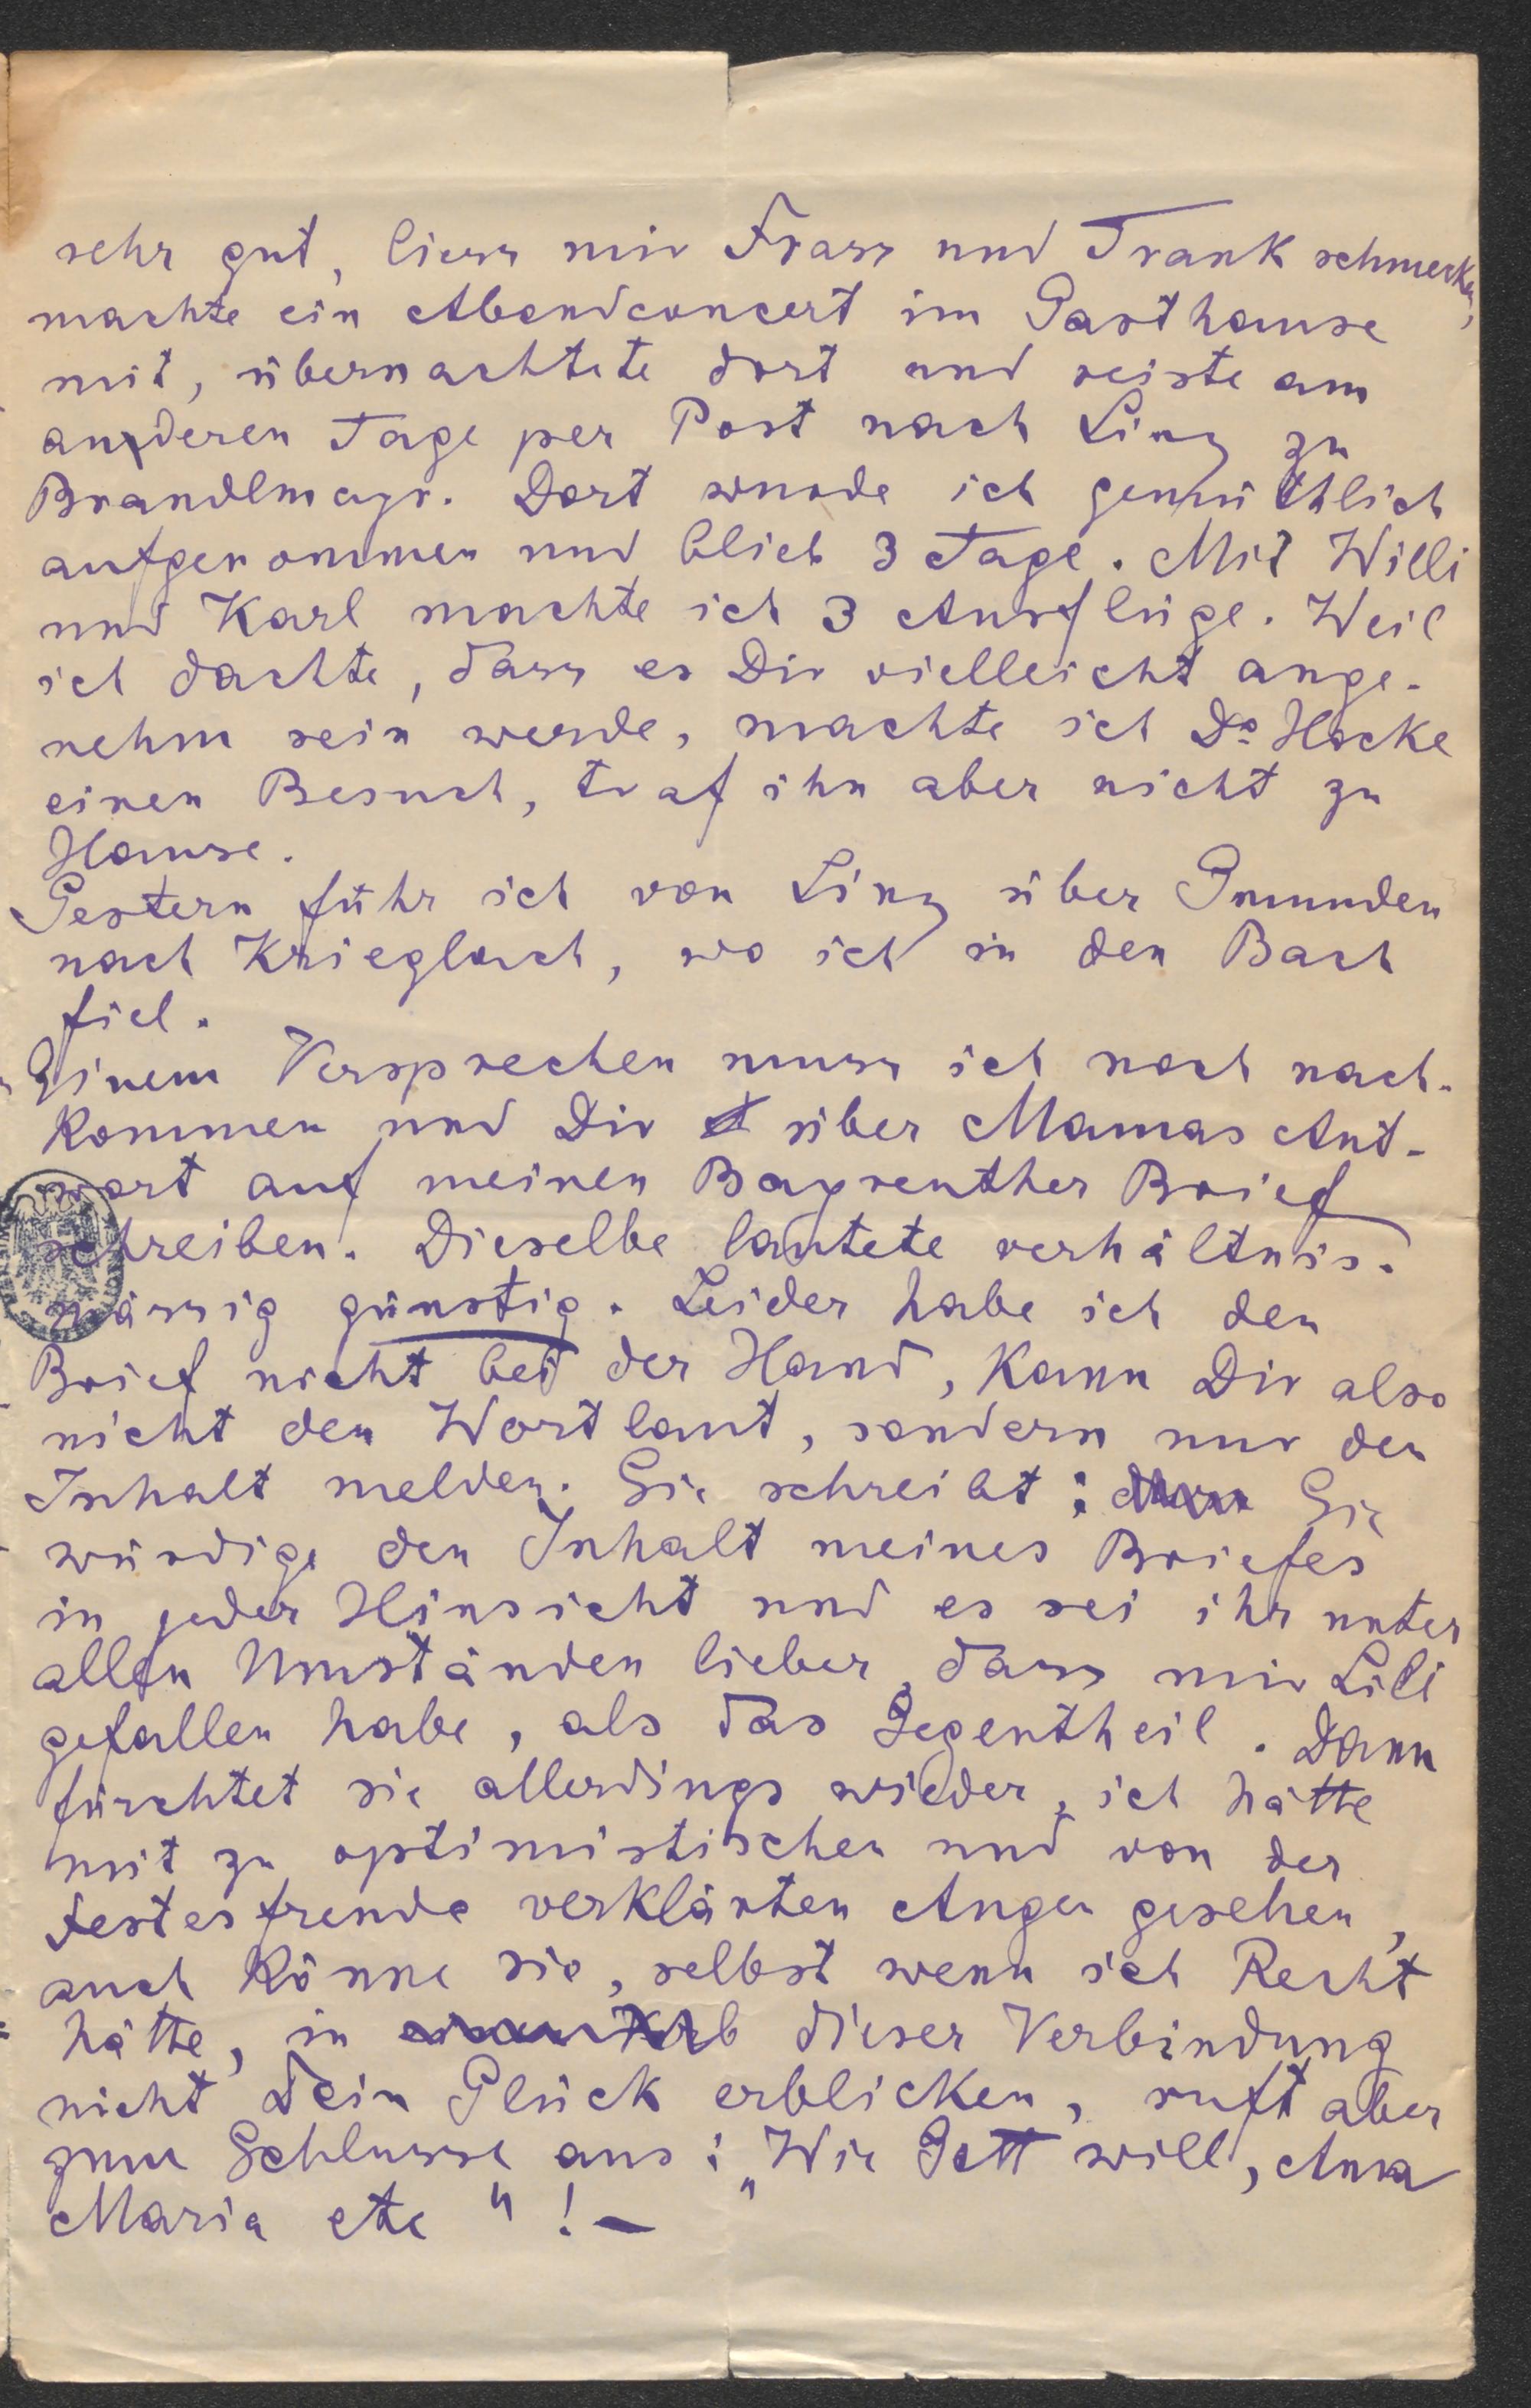 sehr gut, liess mir Frass und Trank schmecken,
machte ein Abendconcert im Gasthause
mit, übernachtete dort und reiste am
anderen Tage per Post nach Linz zu
Brandlmayr. Dort wurde ich gemüthlich
aufgenommen und blieb 3 Tage. Mit Willi
und Karl machte ich 3 Ausflüge. Weil
ich dachte, dass es Dir vielleicht ange-
nehm sein werde, machte ich Dr Hocke
einen Besuch, traf ihn aber nicht zu
Hause.
Gestern fuhr ich von Linz über Gmunden
nach Krieglach, wo ich in den Bach
fiel.
Einem Versprechen muss ich noch nach-
kommen und Dir über Mamas Ant-
wort auf meinen Bayreuther Brief
schreiben. Dieselbe lautete verhältnis-
mässig günstig. Leider habe ich den
Brief nicht bei der Hand, kann Dir also
nicht den Wortlaut, sondern nur den
Inhalt melden. Sie schreibt: Sie
würdige den Inhalt meines Briefes
in jeder Hinsicht und es sei ihr unter
allen Umständen lieber, dass mir Lili
gefallen habe, als das Gegentheil. Dann
fürchtet sie allerdings wieder, ich hätte
mit zu optimistischen und von der
Festesfreude verklärten Augen gesehen,
auch könne sie, selbst wenn ich Recht
hätte, in dieser Verbindung
nicht Dein Glück erblicken, ruft aber
zum Schlusse aus: „Wie Gott will, Anna
Maria etc"!—